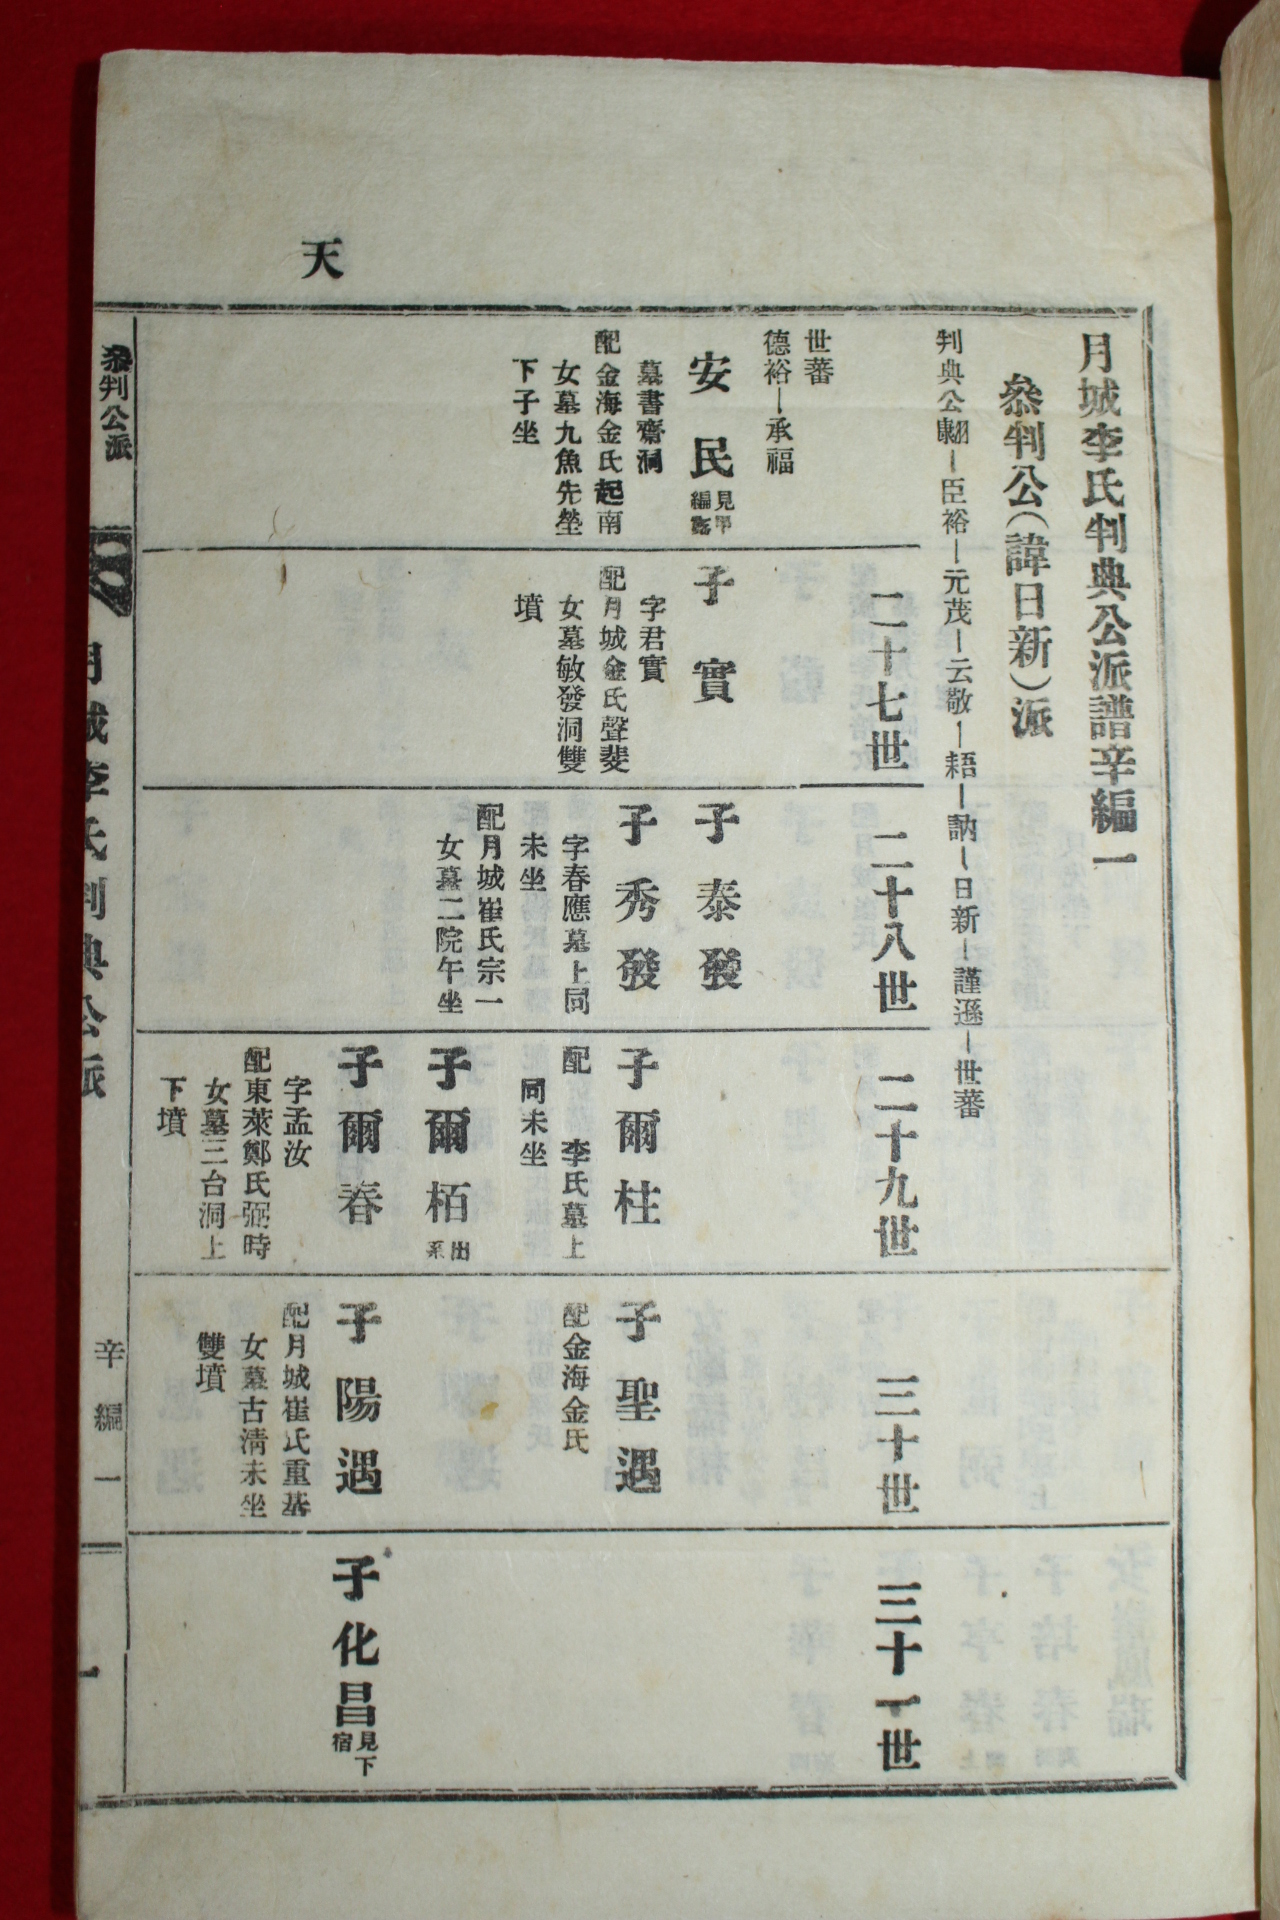 天
月城李氏判典公派譜辛編一
叅判公(諱日新)派
判典公翽ー臣裕ー元茂ー云敬ー䎸ー訥ー日新ー謹遜ー世蕃
二十七世
二十八世
二十九世
三十世
三十一世
世蕃
德裕ー承福
安民
見甲
編
墓書齋洞
配金海金氏起南
女墓九魚先塋
下子坐
子實
字君實
配月城金氏聲斐
女墓敏發洞雙
墳
子泰發
子秀發
字春應墓上同
未坐
配月城崔氏宗一
女墓二院午坐
子爾柱
配　李氏墓上
同未坐
子爾栢
出
系
子爾春
字孟汝
配東萊鄭氏弼時
女墓三台洞上
下墳
子聖遇
配金海金氏
子陽遇
配月城崔氏重基
女墓古淸未坐
雙墳
子化昌
見下
宿
叅判公派
月城李氏判典公派
辛編一
一